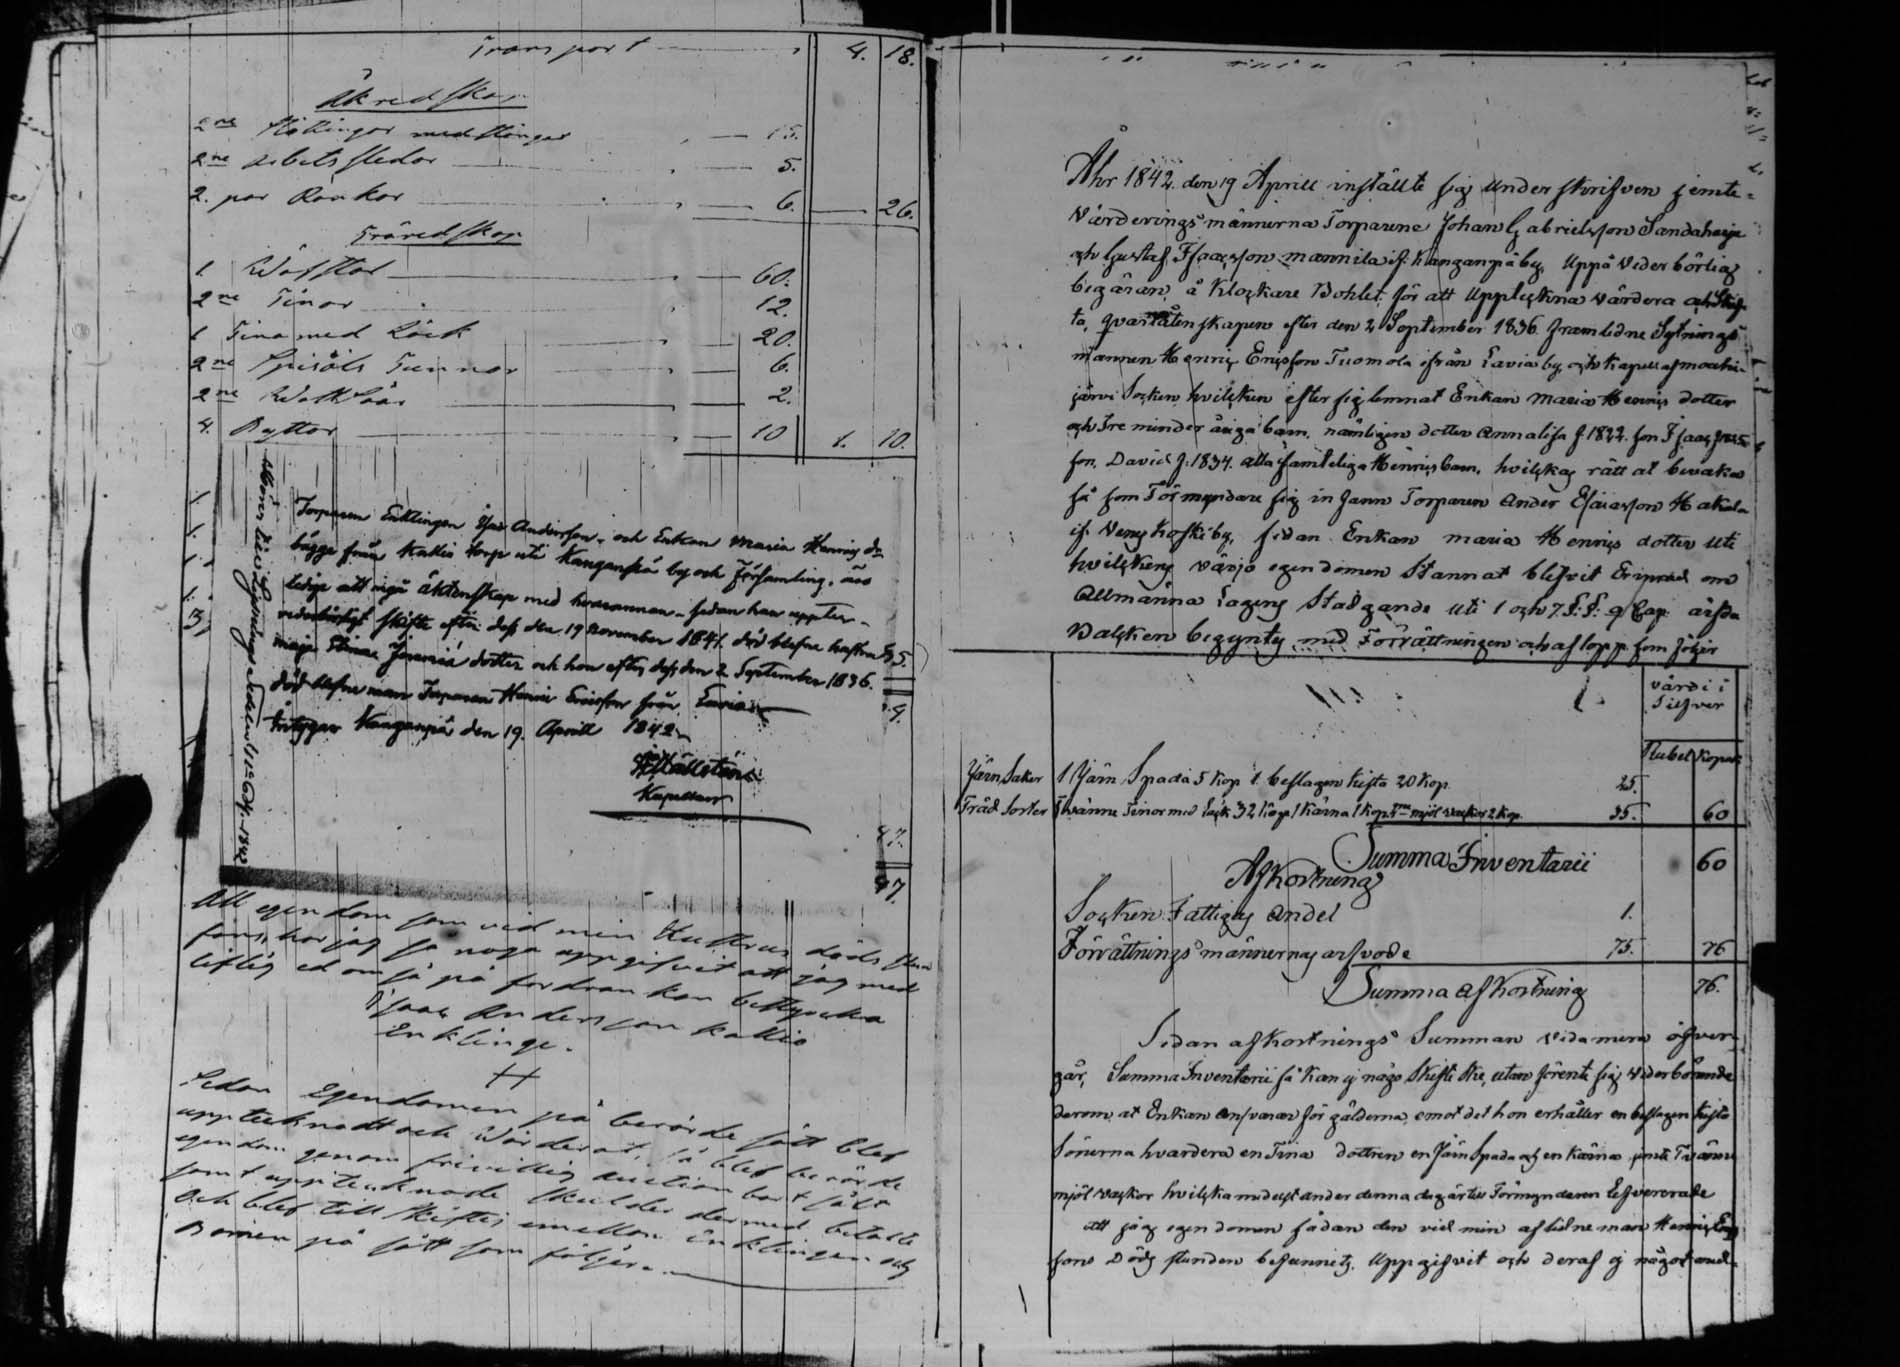 Transport 4. 18.
Åkredskap
2ne med stänger 15.
2ne arbets slädor 5.
2. par Rankor 6. 26.
Träredskap
1. Wäfstol 60.
2ne Tinor 12.
1 Tina med Låck 20.
2ne Spisöls Tunnor 6.
2ne 2.
4. Byttor 10 1. 10.
Torparen Enklingen Isac Andersson och Enkan Maria Henrics dr
bägge från Kallio torp uti Kanganpä by och Församling, äro
ledige att ingå äktenskap med hvarannan sedan han upptes
vederbörligt skifte efter dess den 19 November 1841. död blefne hustru
Maja Stina Jeremiä dotter och hon efter dess den 2 September 1836.
död blefne man Torparen Henric Ericsson från Lavia
intygar Kangenpä den 19. Aprill 1842
Kapellan
47.
47.
All egendom som vid min Hustrus döds stund
fans, har jag så noga uppgifvit att jag med
liflig ed om så på fordran kan bestyrcka
Isaac Andersson Kallio
Enklinge.
Sedan Egendomen på berörde sätt blef
upptecknadt och Wärderat, så blef berörde
egendom genom frivillig auction bort såld
samt upptecknade skulder dermed betalte
och blef till skiftes emellan Enklingen och
Barnen på sätt som följer.
Åhr 1842. den 19 Aprill inställte sig underskrifven jemte
Värderings männerna Torparene Johan Gabrielsson Sandaharju
och Gustaf Isaacsson Mannila if. Kanganpä by, Uppå Vederbörlig
begäran å Klockare Bohlet för att Upplckna värdera och Skif-
ta, qvarlåtenskapen efter den 2 September 1836 framledne Sytnings
mannen Henric Ericsson Tuomola ifrån Lavia by och Kapell af Mouhi-
järvi Socken hvilcken efter sig lemnat Enkan Maria Henrics dotter
och Tre minder åriga barn, nämligen dotter Annalisa f. 1822. son Isaac f 1825
son, David f. 1834. alla samteliga Henrics barn, hvilckas rätt at bevaka
så som Förmyndare sig in fann Torparen Ander Esaiasson Hakala
if. Venes Koski by, sedan Enkan Maria Henrics dotter uti
hvilckens värjo egendomen Stannat blefvit Erinrad om
Allmänna Lagens Stadgande uti 1 och 7. §. §. 9 Cap. ärfda
Balcken begyntes med Förrättningen och aflopp som följer
värdi i Silfver
Rubel Kopek
Järn Saker 1 Järn Spada 5 Kop 1 beslagen kista 20 Kop 25.
Träd Sorter Tvänne Tinor med Låck 32 Kop 1 Kärna 1 Kop 2ne mjöl vackor 2 Kop. 35. 60
Summa Inventarii 60
Afkortning
Socken Fattigas Andel 1.
Förrättnings männernas arfvode 75. 76
Summa afkortning 76.
Sedan afkortnings Summan vida mera öfver
går, Summa Inventarii så kan ej någo Skifte ske, utan förente sig Vederbörande
derom, at Enkan ansvarar för gälderna, emot det hon erhåller en beslagen kista
Sönerna hvardera en Tina dottren en Järn Spada och en kärna jemte Tvänne
mjöl vackor
att jag egendomen sådan den vid min aflidne man Henric Erics
sons Döds stunden befunnits, Uppgifvit och deraf ej något und-